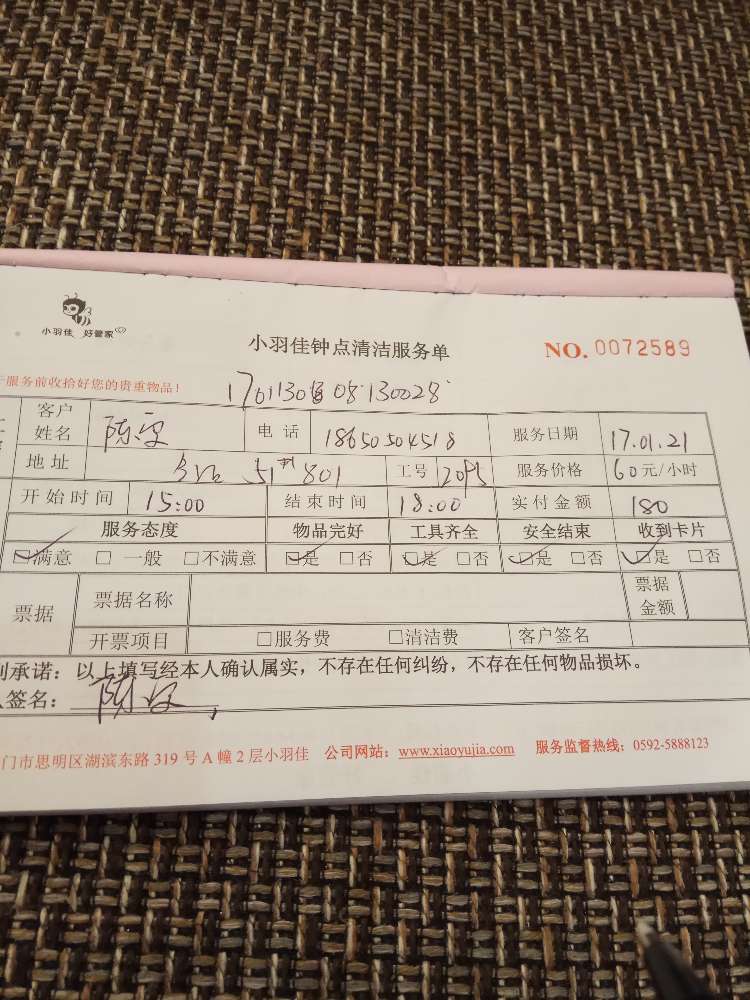 小羽佳 好管家
小羽佳钟点清洁服务单 NO. 0072589
服务前收拾好您的贵重物品!
客户姓名 陈 电话 18650504518 服务日期 17.01.21
地址 51 801 工号 2095 服务价格 60元/小时
开始时间 15:00 结束时间 18:00 实付金额 180
服务态度 物品完好 工具齐全 安全结束 收到卡片
☑满意 □一般 □不满意 ☑是 □否 ☑是 □否 ☑是 □否 ☑是 □否
票据 票据名称 票据金额
开票项目 □服务费 □清洁费 客户签名
承诺:以上填写经本人确认属实,不存在任何纠纷,不存在任何物品损坏。
签名: 陈
门市思明区湖滨东路 319 号 A 幢 2 层小羽佳 公司网站:www.xiaoyujia.com 服务监督热线:0592-5888123